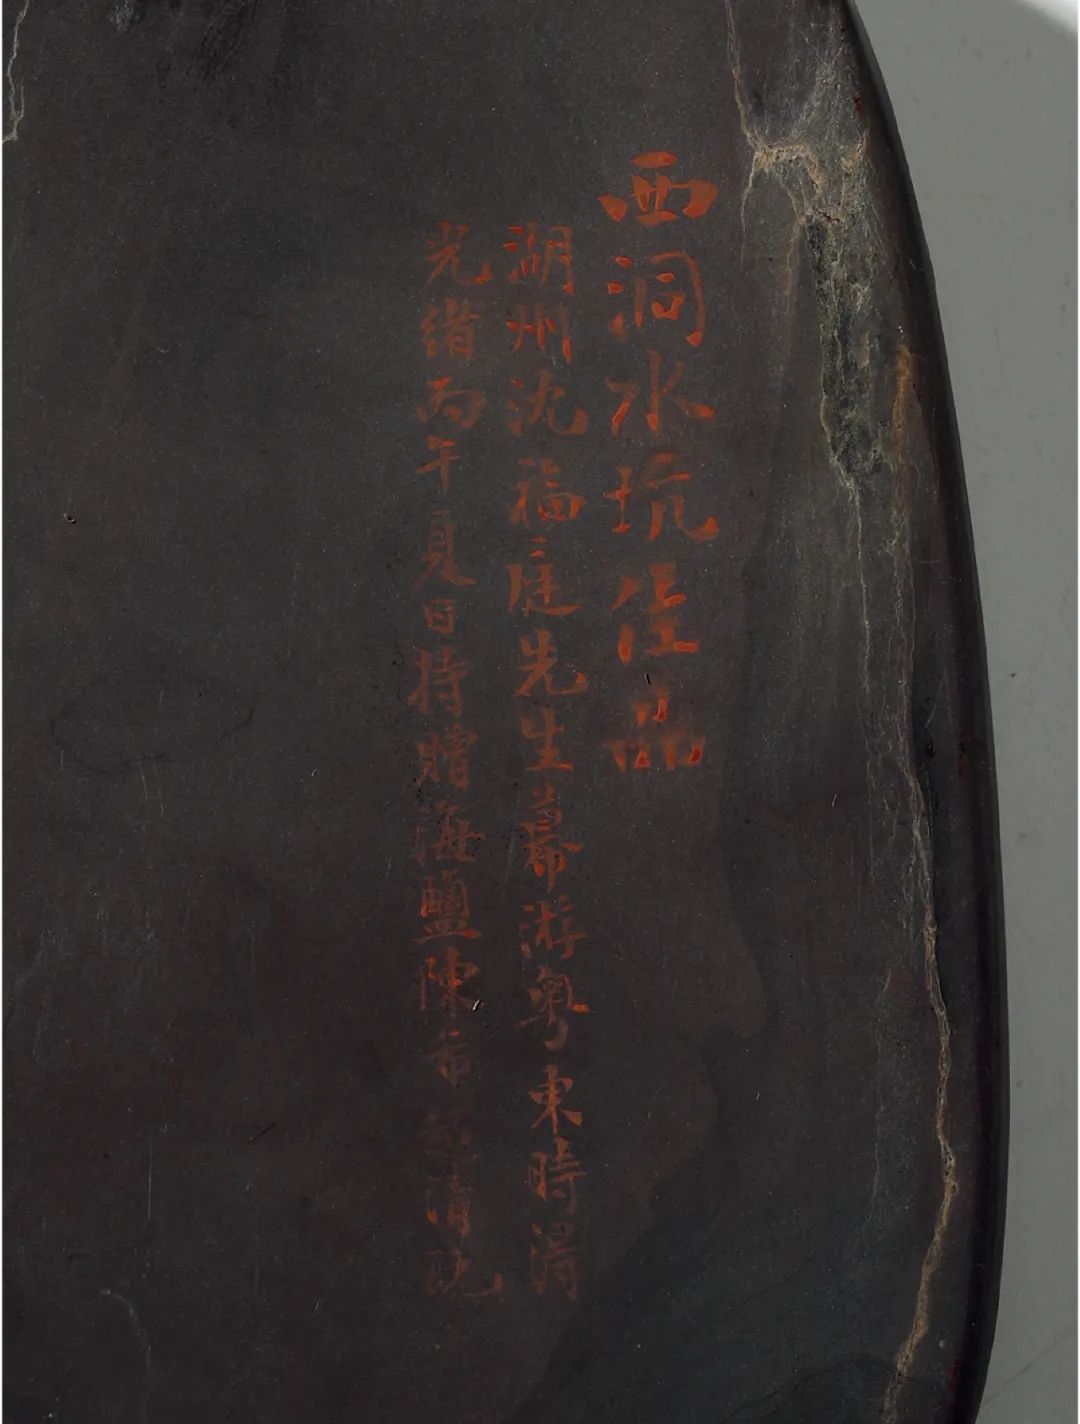 西洞水坑佳品
湖州沈福庭先生幕游粵東時得
光緒丙午夏日持贈海鹽陳清玩